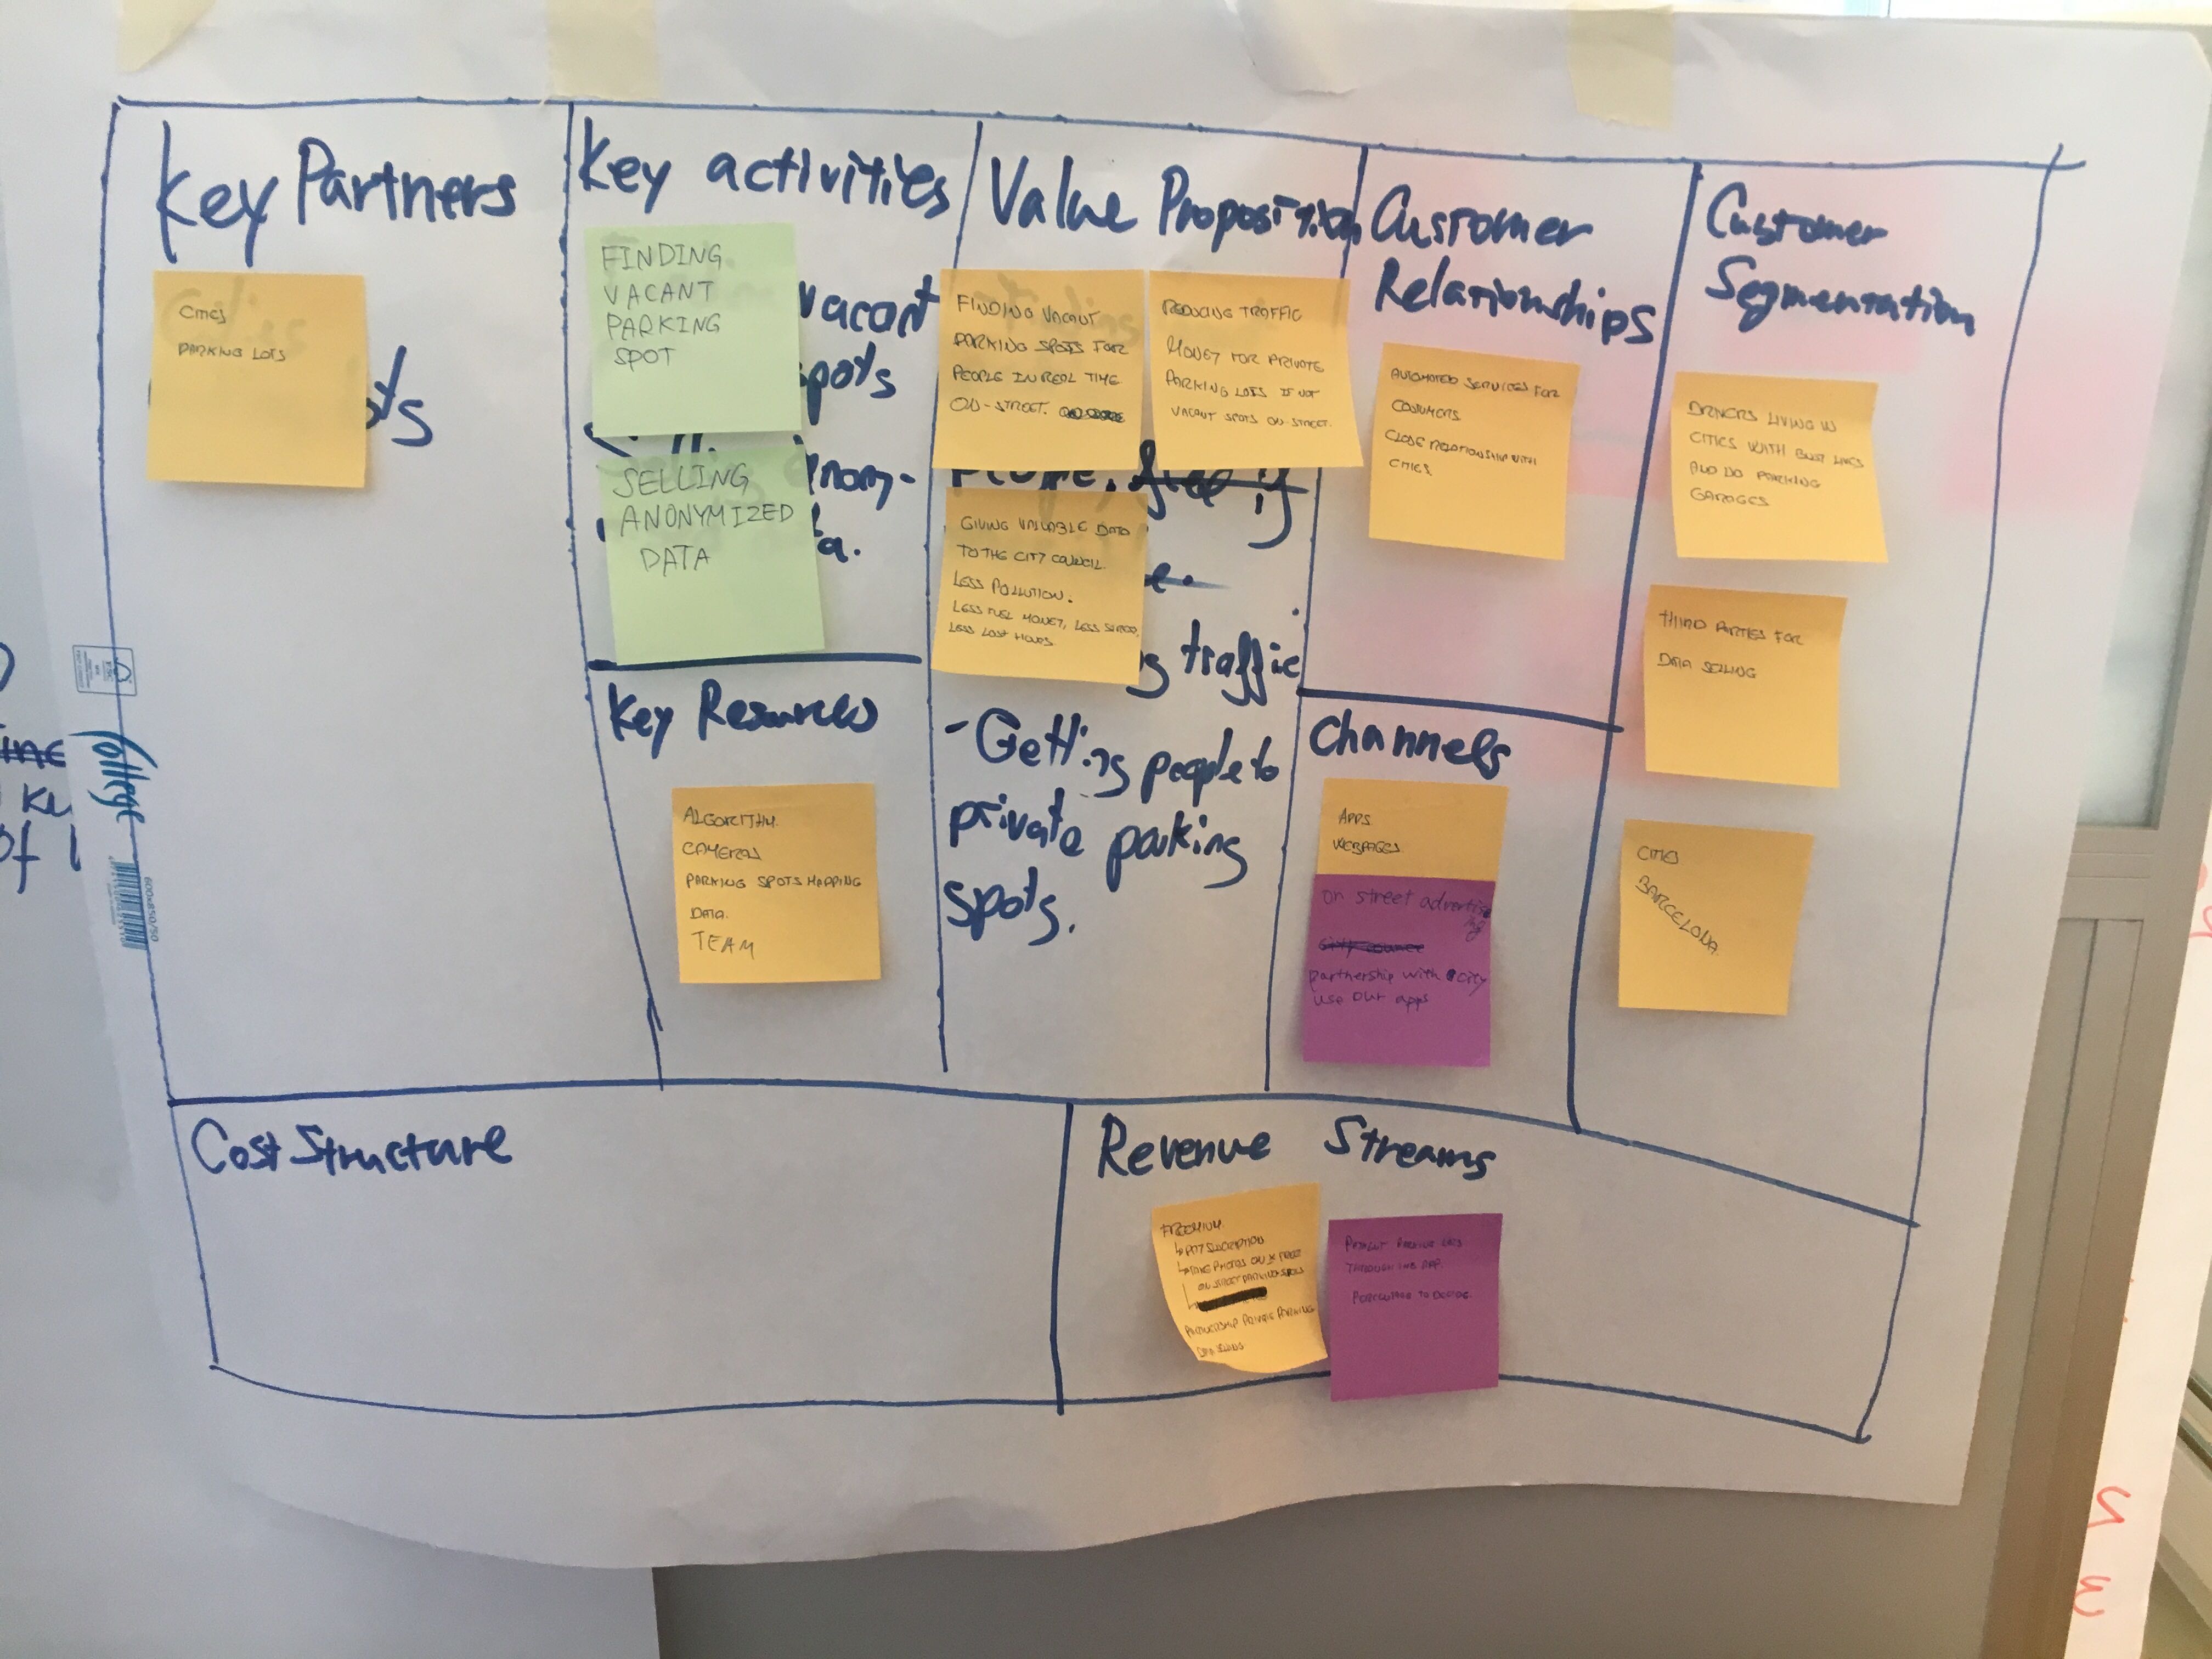 Key Partners
CITIES
PARKING LOTS
ts
Key activities
FINDING
VACANT
PARKING
SPOT
vacant
spots
SELLING
ANONYMIZED
DATA
nony-
ta.
Key Resources
ALGORITHM.
CAMERAS
PARKING SPOTS MAPPING
DATA.
TEAM
Value Proposition
FINDING VACANT
PARKING SPOTS FOR
PEOPLE IN REAL TIME
ON-STREET.
REDUCING TRAFFIC
MONEY FOR PRIVATE
PARKING LOTS IF NOT
VACANT SPOTS ON STREET.
people, free if
e.
GIVING VALUABLE DATA
TO THE CITY COUNCIL.
LESS POLLUTION.
LESS FUEL MONEY, LESS
LESS LOST HOURS.
g traffic.
- Getting people to
private parking
spots.
Customer
Relationships
AUTOMATED SERVICES FOR
COSTUMERS
CLOSE RELATIONSHIP WITH
CITIES.
Channels
APPS
WEBPAGES
on street advertising
city counci
partnership with city
use our apps
Customer
Segmentation
DRIVERS LIVING IN
CITIES WITH BUSY LIVES
AND NO PARKING
GARAGES
THIRD PARTIES FOR
DATA SELLING
CITIES
BARCELONA.
Cost Structure
Revenue Streams
FREEMIUM
TAKE PHOTOS ON
ON STREET PARKING SPOTS
PARTNERSHIP PRIVATE PARKING
DATA SELLING
THROUGH THE APP.
PERCENTAGE TO DECIDE.
college
600x850/50
of